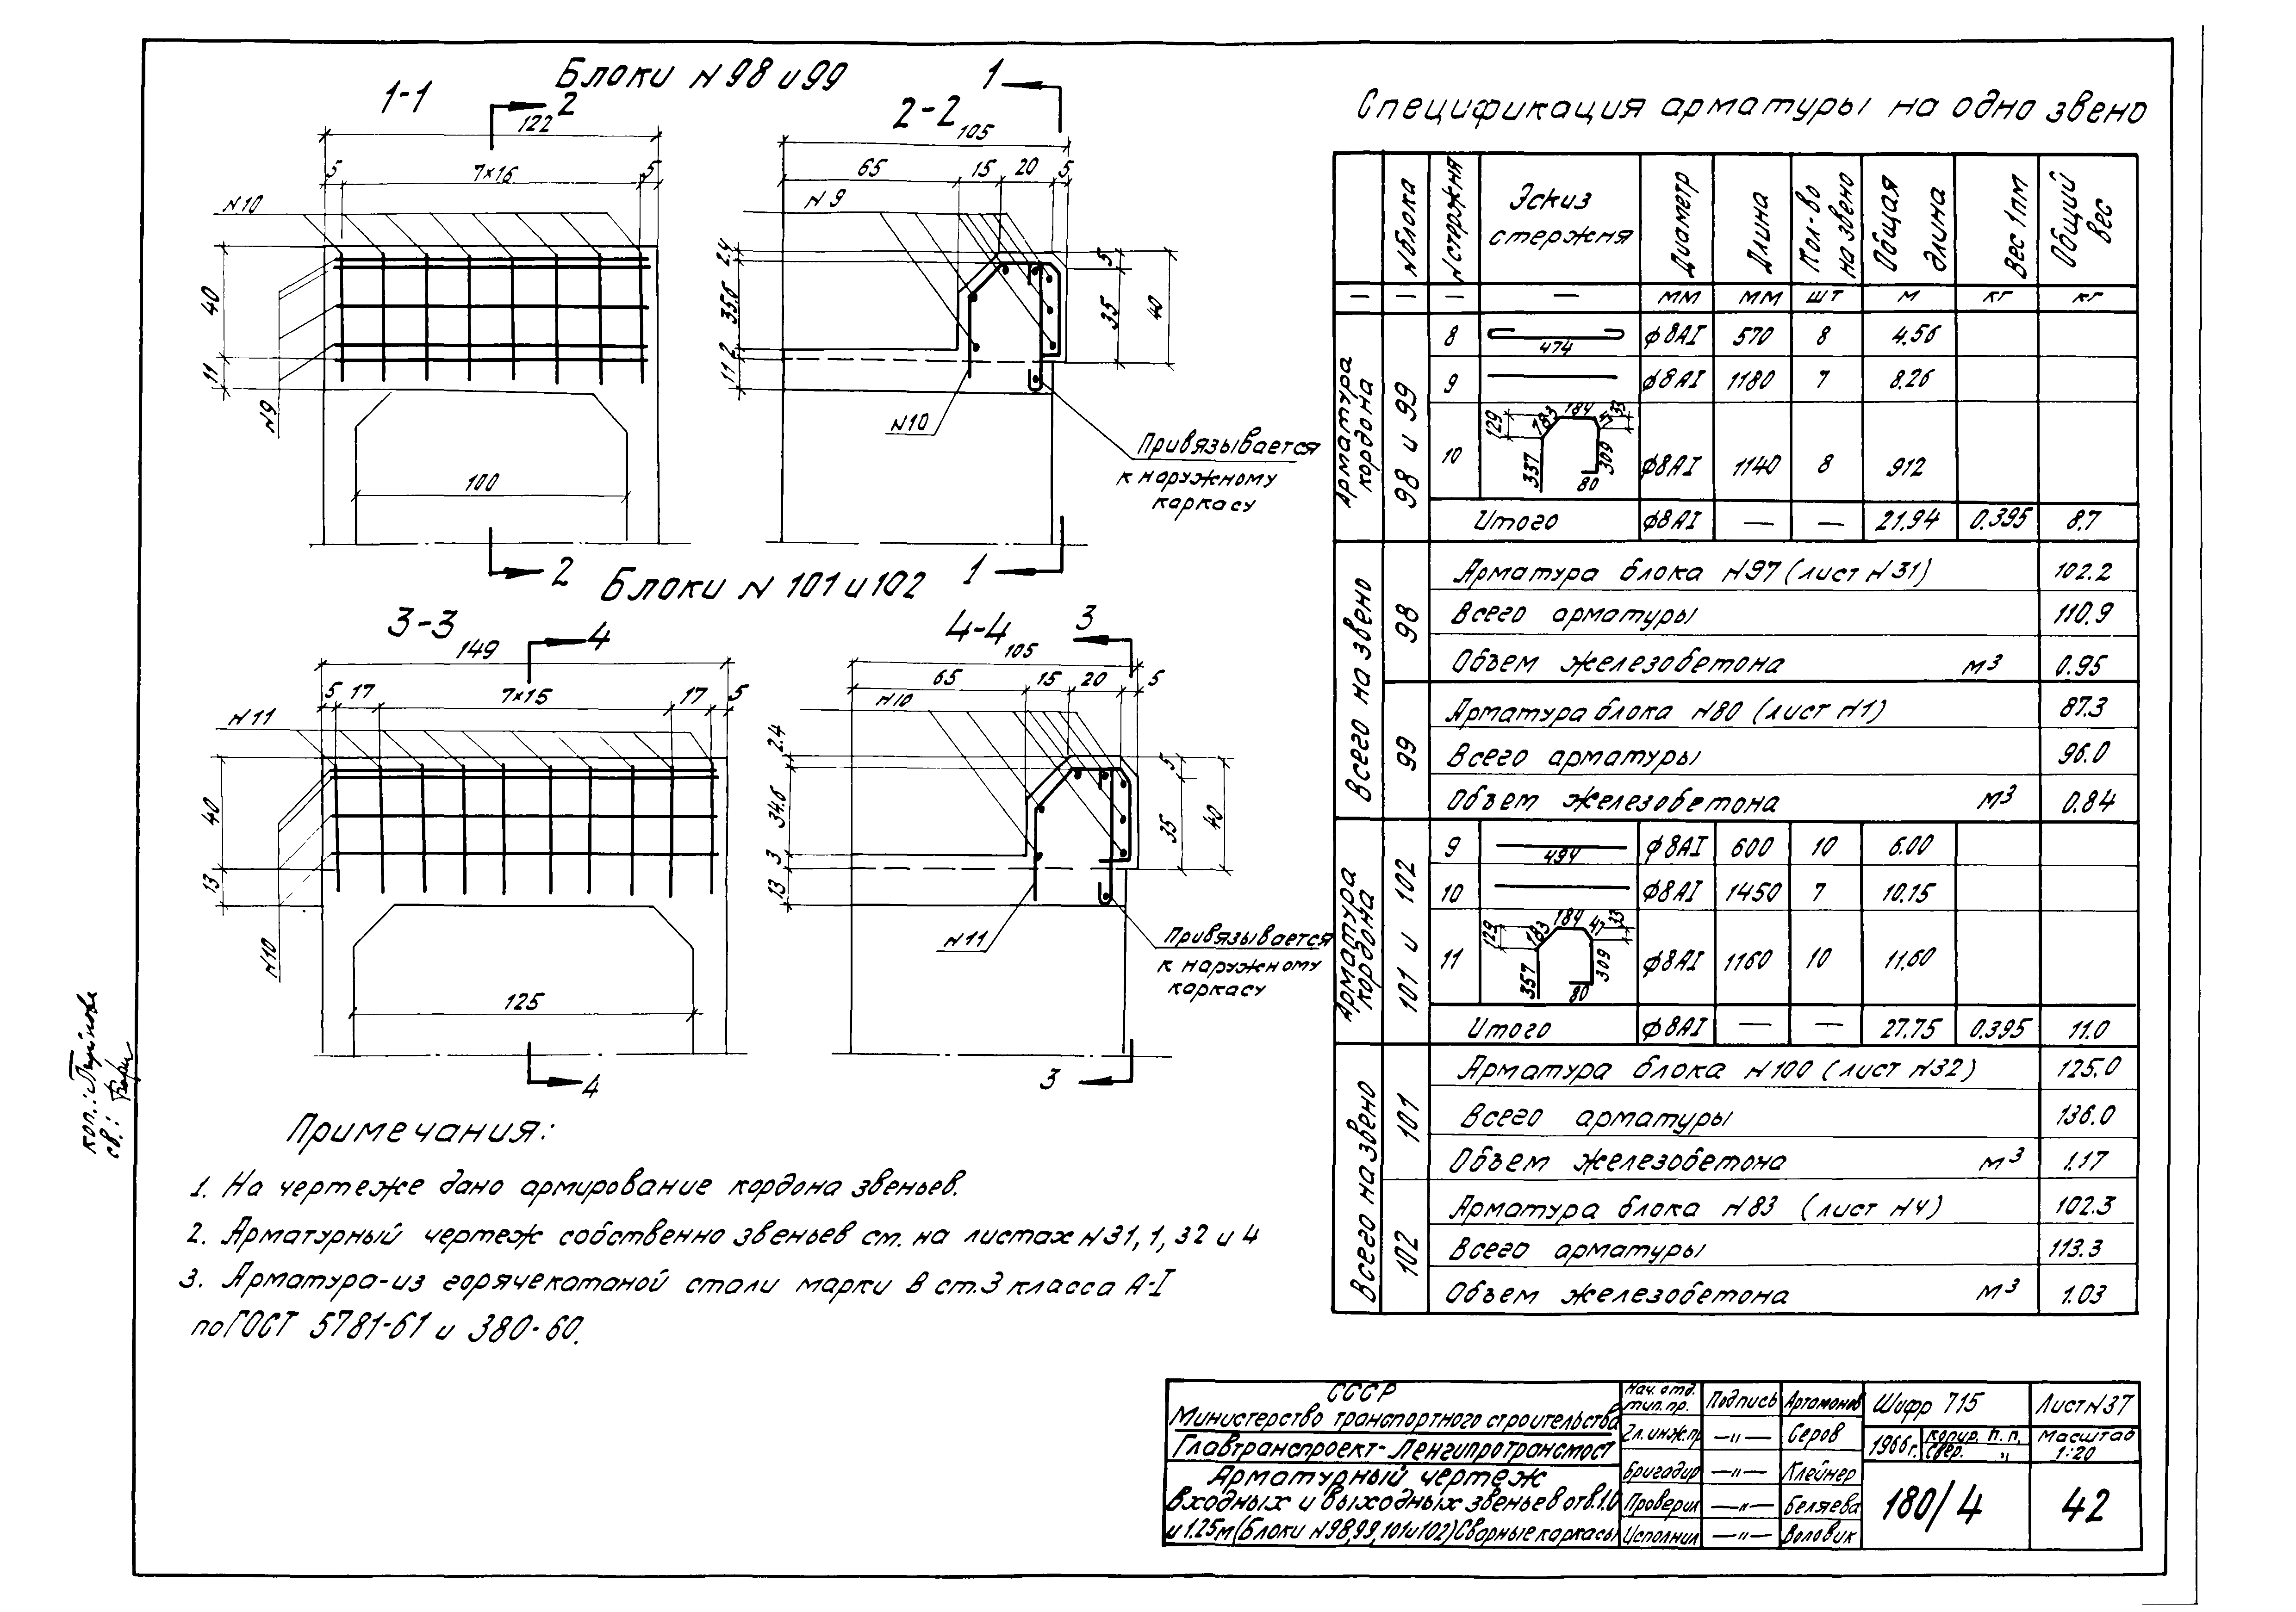 Блоки N 98 и 99
1-1
2
122
5
7×16
5
N10
40
11
N9
100
2
2-2
1
105
65
15
20
5
N9
2.4
35.6
2
11
5
35
40
N10
Привязывается
к наружному
каркасу
1
Блоки N 101 и 102
3-3
4
149
5
17
7×15
17
5
N11
40
13
N10
125
4
4-4
3
105
65
15
20
5
N10
2.4
34.6
3
13
5
35
40
N11
Привязывается
к наружному
каркасу
3
Примечания:
1. На чертеже дано армирование кордона звеньев.
2. Арматурный чертеж собственно звеньев см. на листах N31, 1, 32 и 4
3. Арматура-из горячекатаной стали марки В ст.3 класса А-I
по ГОСТ 5781-61 и 380-60.
Спецификация арматуры на одно звено
N блока N стержня Эскиз стержня Диаметр Длина Кол-во на звено Общая длина Вес 1пм Общий вес
— — — — мм мм шт м кг кг
Арматура кордона
98 и 99
8 474 ф8АI 570 8 4.56
9 ф8АI 1180 7 8.26
10 129 183 184 33 309 337 80 ф8АI 1140 8 912
Итого ф8АI — — 21.94 0.395 8.7
Всего на звено
98
Арматура блока N97 (лист N31) 102.2
Всего арматуры 110.9
Объем железобетона м3 0.95
99
Арматура блока N80 (лист N1) 87.3
Всего арматуры 96.0
Объем железобетона м3 0.84
Арматура кордона
101 и 102
9 494 ф8АI 600 10 6.00
10 ф8АI 1450 7 10.15
11 129 183 184 47 33 309 357 80 ф8АI 1160 10 11.60
Итого ф8АI — — 27.75 0.395 11.0
Всего на звено
101
Арматура блока N100 (лист N32) 125.0
Всего арматуры 136.0
Объем железобетона м3 1.17
102
Арматура блока N83 (лист N4) 102.3
Всего арматуры 113.3
Объем железобетона м3 1.03
коп.:
св.:
СССР
Министерство транспортного строительства
Главтранспроект-Ленгипротрансмост
Арматурный чертеж
входных и выходных звеньев отв.1.0
и 1.25м (Блоки N98,99,101и102) Сборные каркасы
Нач. отд. тип. пр. Подпись Артамонов
Гл.инж.пр —"— Серов
Бригадир —"— Клейнер
Проверил —"— Беляева
Исполнил —"— Воловик
Шифр 715
Лист N37
1966г.
копир. п.п.
свер. "
Масштаб
1:20
180/4
42